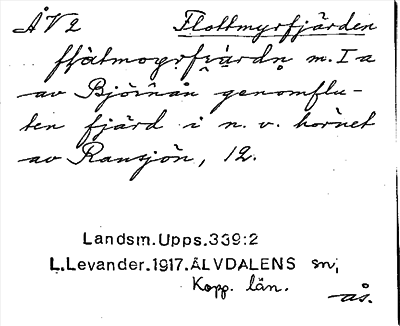 ÅV2 Flottmyrfjärden
m. I a
av Björnån genomflu-
ten fjärd i n. v. hörnet
av Ransjön, 12.
Landsm. Upps. 339:2
L. Levander. 1917. ÄLVDALENS sn,
Kopp. län.
ås.